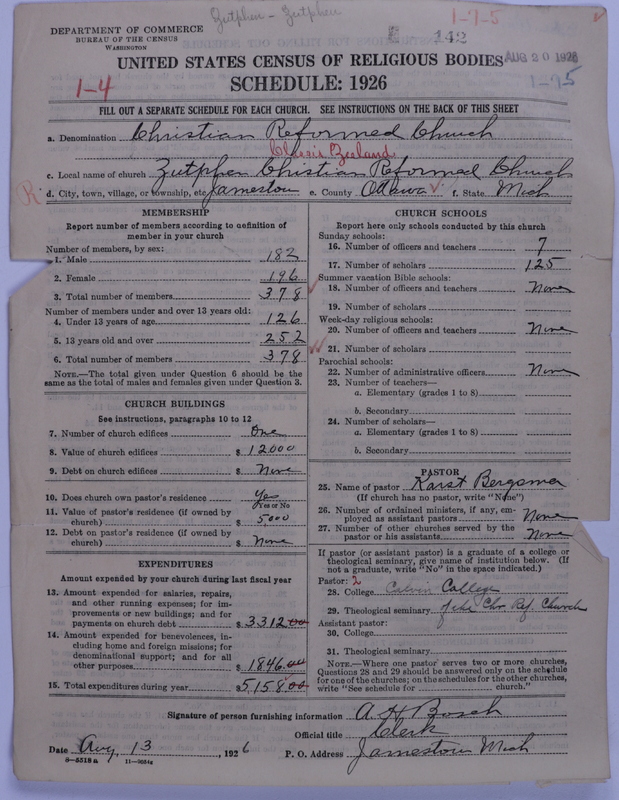 DEPARTMENT OF COMMERCE
BUREAU OF THE CENSUS
WASHINGTON
Zutphen - Zutphen
1-7-5
142
AUG 20 1926
UNITED STATES CENSUS OF RELIGIOUS BODIES
1-4
SCHEDULE: 1926
FILL OUT A SEPARATE SCHEDULE FOR EACH CHURCH. SEE INSTRUCTIONS ON THE BACK OF THIS SHEET
a. Denomination Christian Reformed Church
Classis Zeeland
c. Local name of church Zutphen Christian Reformed Church
R. d. City, town, village, or township, etc. Jamestown e. County Ottawa f. State Mich
MEMBERSHIP
Report number of members according to definition of
member in your church
Number of members, by sex:
1. Male 182
2. Female 196
3. Total number of members 378
Number of members under and over 13 years old:
4. Under 13 years of age 126
5. 13 years old and over 252
6. Total number of members 378
NOTE.—The total given under Question 6 should be the
same as the total of males and females given under Question 3.
CHURCH BUILDINGS
See instructions, paragraphs 10 to 12
7. Number of church edifices One
8. Value of church edifices $ 12000
9. Debt on church edifices $ None
10. Does church own pastor's residence Yes
Yes or No
11. Value of pastor's residence (if owned by
church) $ 5000
12. Debt on pastor's residence (if owned by
church) $ None
EXPENDITURES
Amount expended by your church during last fiscal year
13. Amount expended for salaries, repairs,
and other running expenses; for im-
provements or new buildings; and for
payments on church debt $ 3312 00
14. Amount expended for benevolences, in-
cluding home and foreign missions; for
denominational support; and for all
other purposes $ 1846.00
15. Total expenditures during year $ 5158 00
CHURCH SCHOOLS
Report here only schools conducted by this church
Sunday schools:
16. Number of officers and teachers 7
17. Number of scholars 125
Summer vacation Bible schools:
18. Number of officers and teachers None
19. Number of scholars
Week-day religious schools:
20. Number of officers and teachers None
21. Number of scholars
Parochial schools:
22. Number of administrative officers None
23. Number of teachers—
a. Elementary (grades 1 to 8)
b. Secondary
24. Number of scholars—
a. Elementary (grades 1 to 8)
b. Secondary
PASTOR
25. Name of pastor Karst Bergsma
(If church has no pastor, write "None")
26. Number of ordained ministers, if any, em-
ployed as assistant pastors None
27. Number of other churches served by the
pastor or his assistants None
If pastor (or assistant pastor) is a graduate of a college or
theological seminary, give name of institution below. (If
not a graduate, write "No" in the space indicated.)
Pastor: 2
28. College Calvin College
29. Theological seminary of the Chr. Ref. Church
Assistant pastor:
30. College
31. Theological seminary
NOTE.—Where one pastor serves two or more churches,
Questions 28 and 29 should be answered only on the schedule
for one of the churches; on the schedules for the other churches,
write "See schedule for church."
Signature of person furnishing information A. H. Bosch
Official title Clerk
Date Aug 13, 1926 P. O. Address Jamestown Mich
8-5518 a